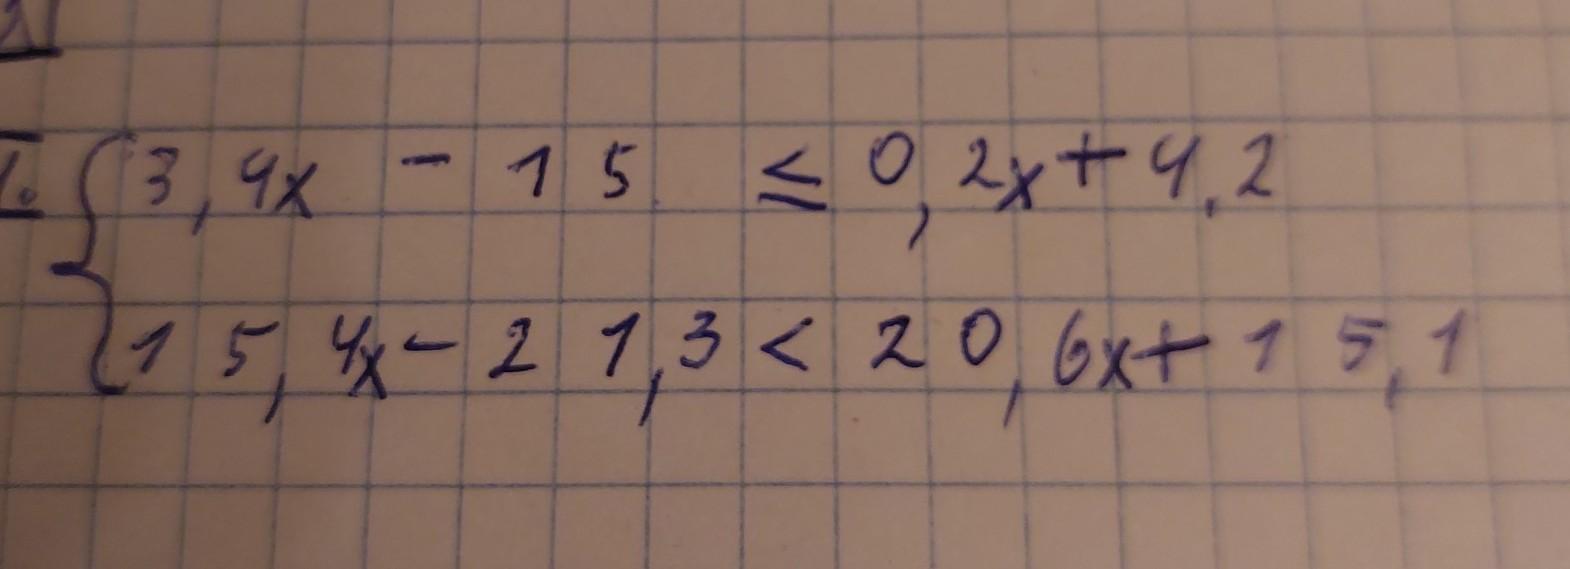 1. { 3,4x - 15 ≤ 0,2x + 4,2
15,4x - 21,3 < 20,6x + 15,1